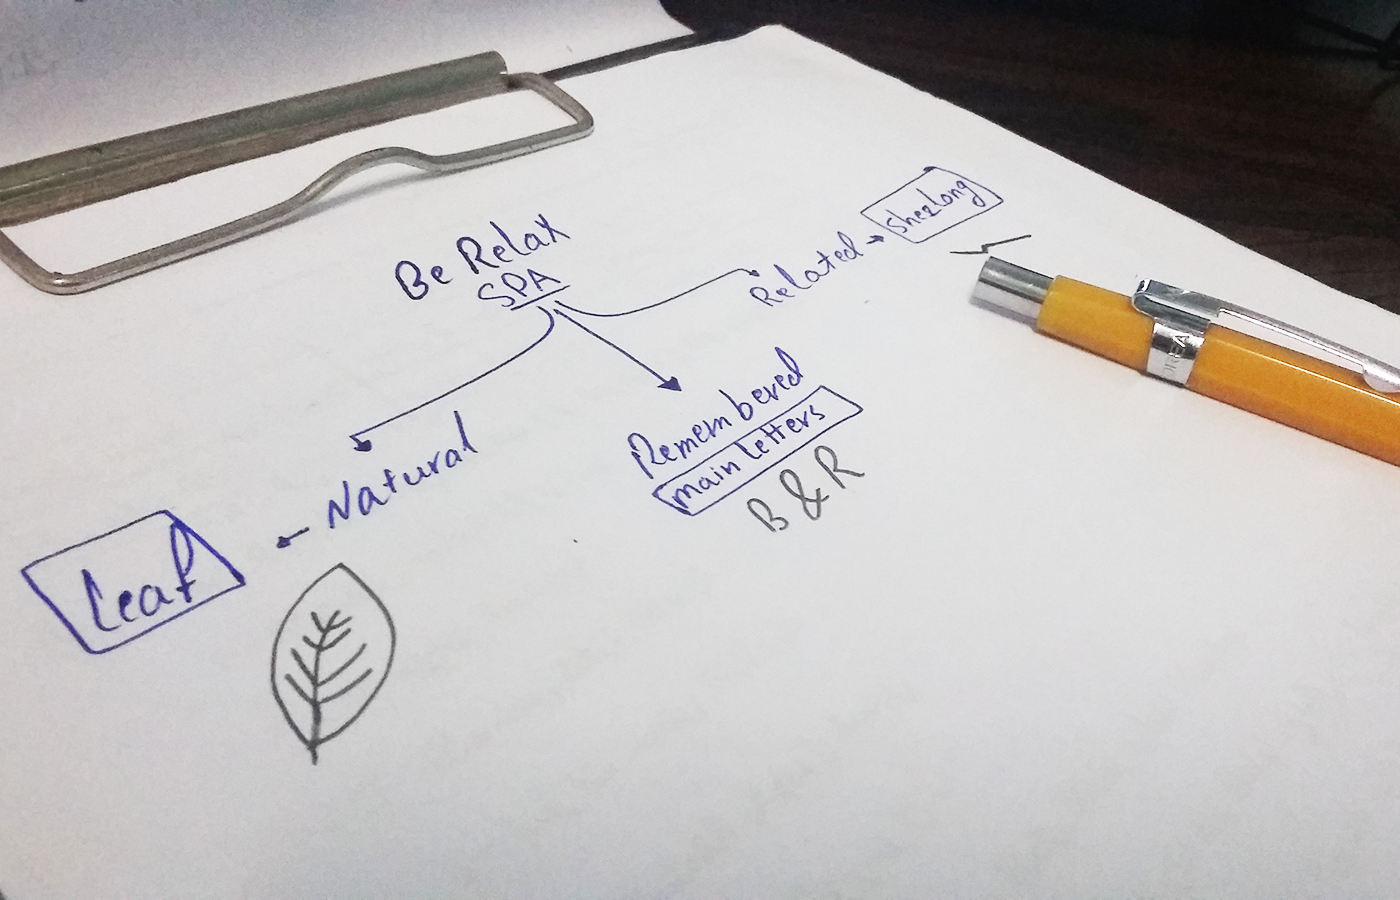 Be Relax
SPA
Related
shezlong
Remembered
main letters
B & R
Natural
Leaf